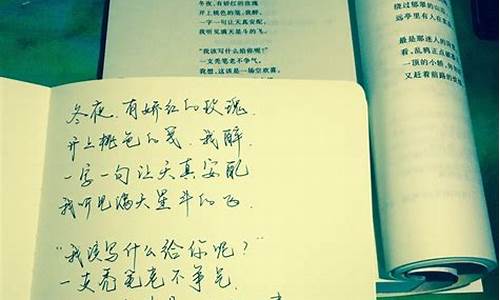 冬夜,有娇红的玫瑰
开上桃色的笺,我醉,
一字一句让天真安配
我听见满天星斗的飞.
“我该写什么给你呢?”
一支秃笔老不争气.
冬夜,有娇红的玫瑰
开上桃色的笺,我醉,
一字一句让天真安配,
我听见满天星斗的飞。
“我该写什么给你呢?”
一支秃笔老不争气,
我想,这该是一场空欢喜,
绕过郁翠的山
远亭里有人在
最是那迷人的
看,乱鸦正
一顶的小轿,
又赶着前路的